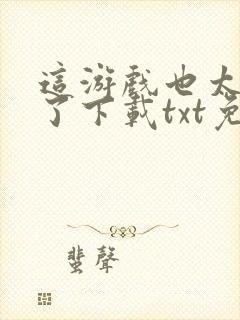 這游戲也太
了下載txt免
蜚聲